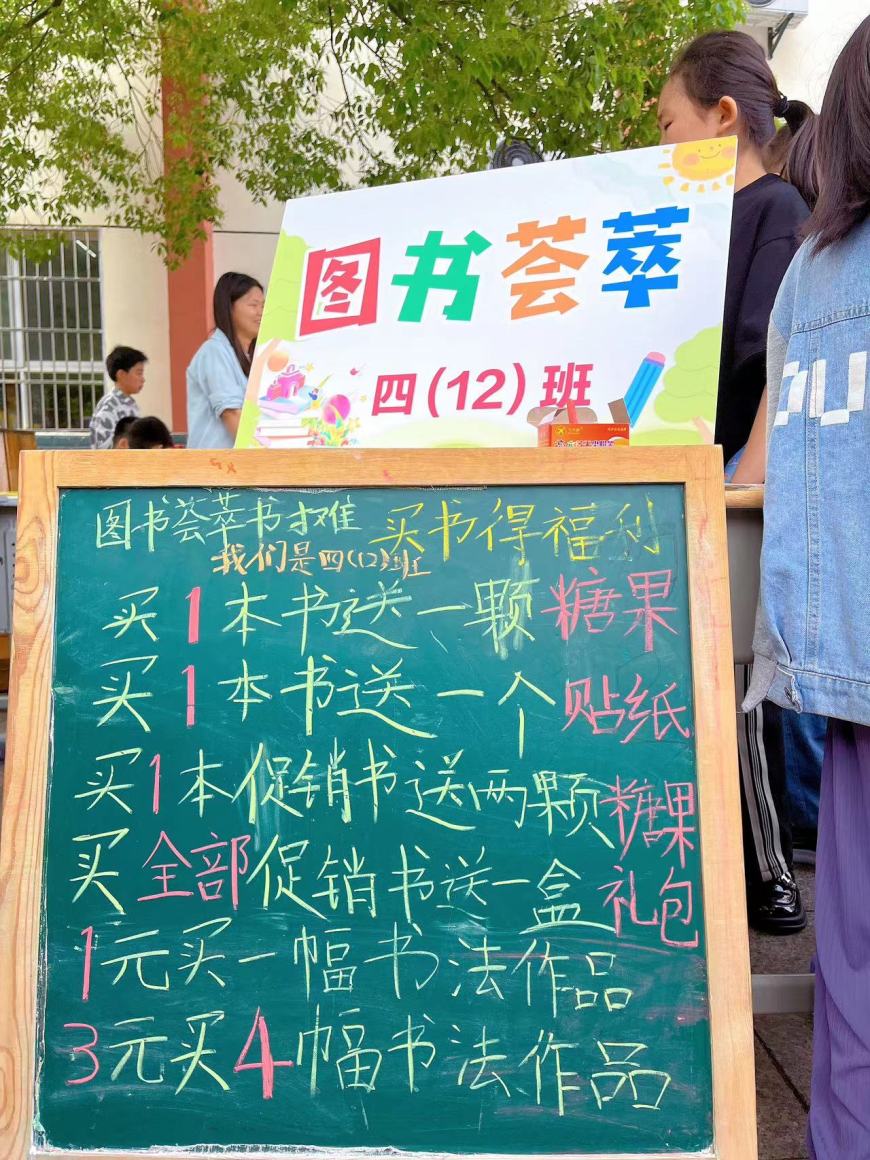 图书荟萃
四(12)班
图书荟萃书摊 买书得福利
我们是四(12)班
买1本书送一颗糖果
买1本书送一个贴纸
买1本促销书送两颗糖果
买全部促销书送一盒礼包
1元买一幅书法作品
3元买4幅书法作品